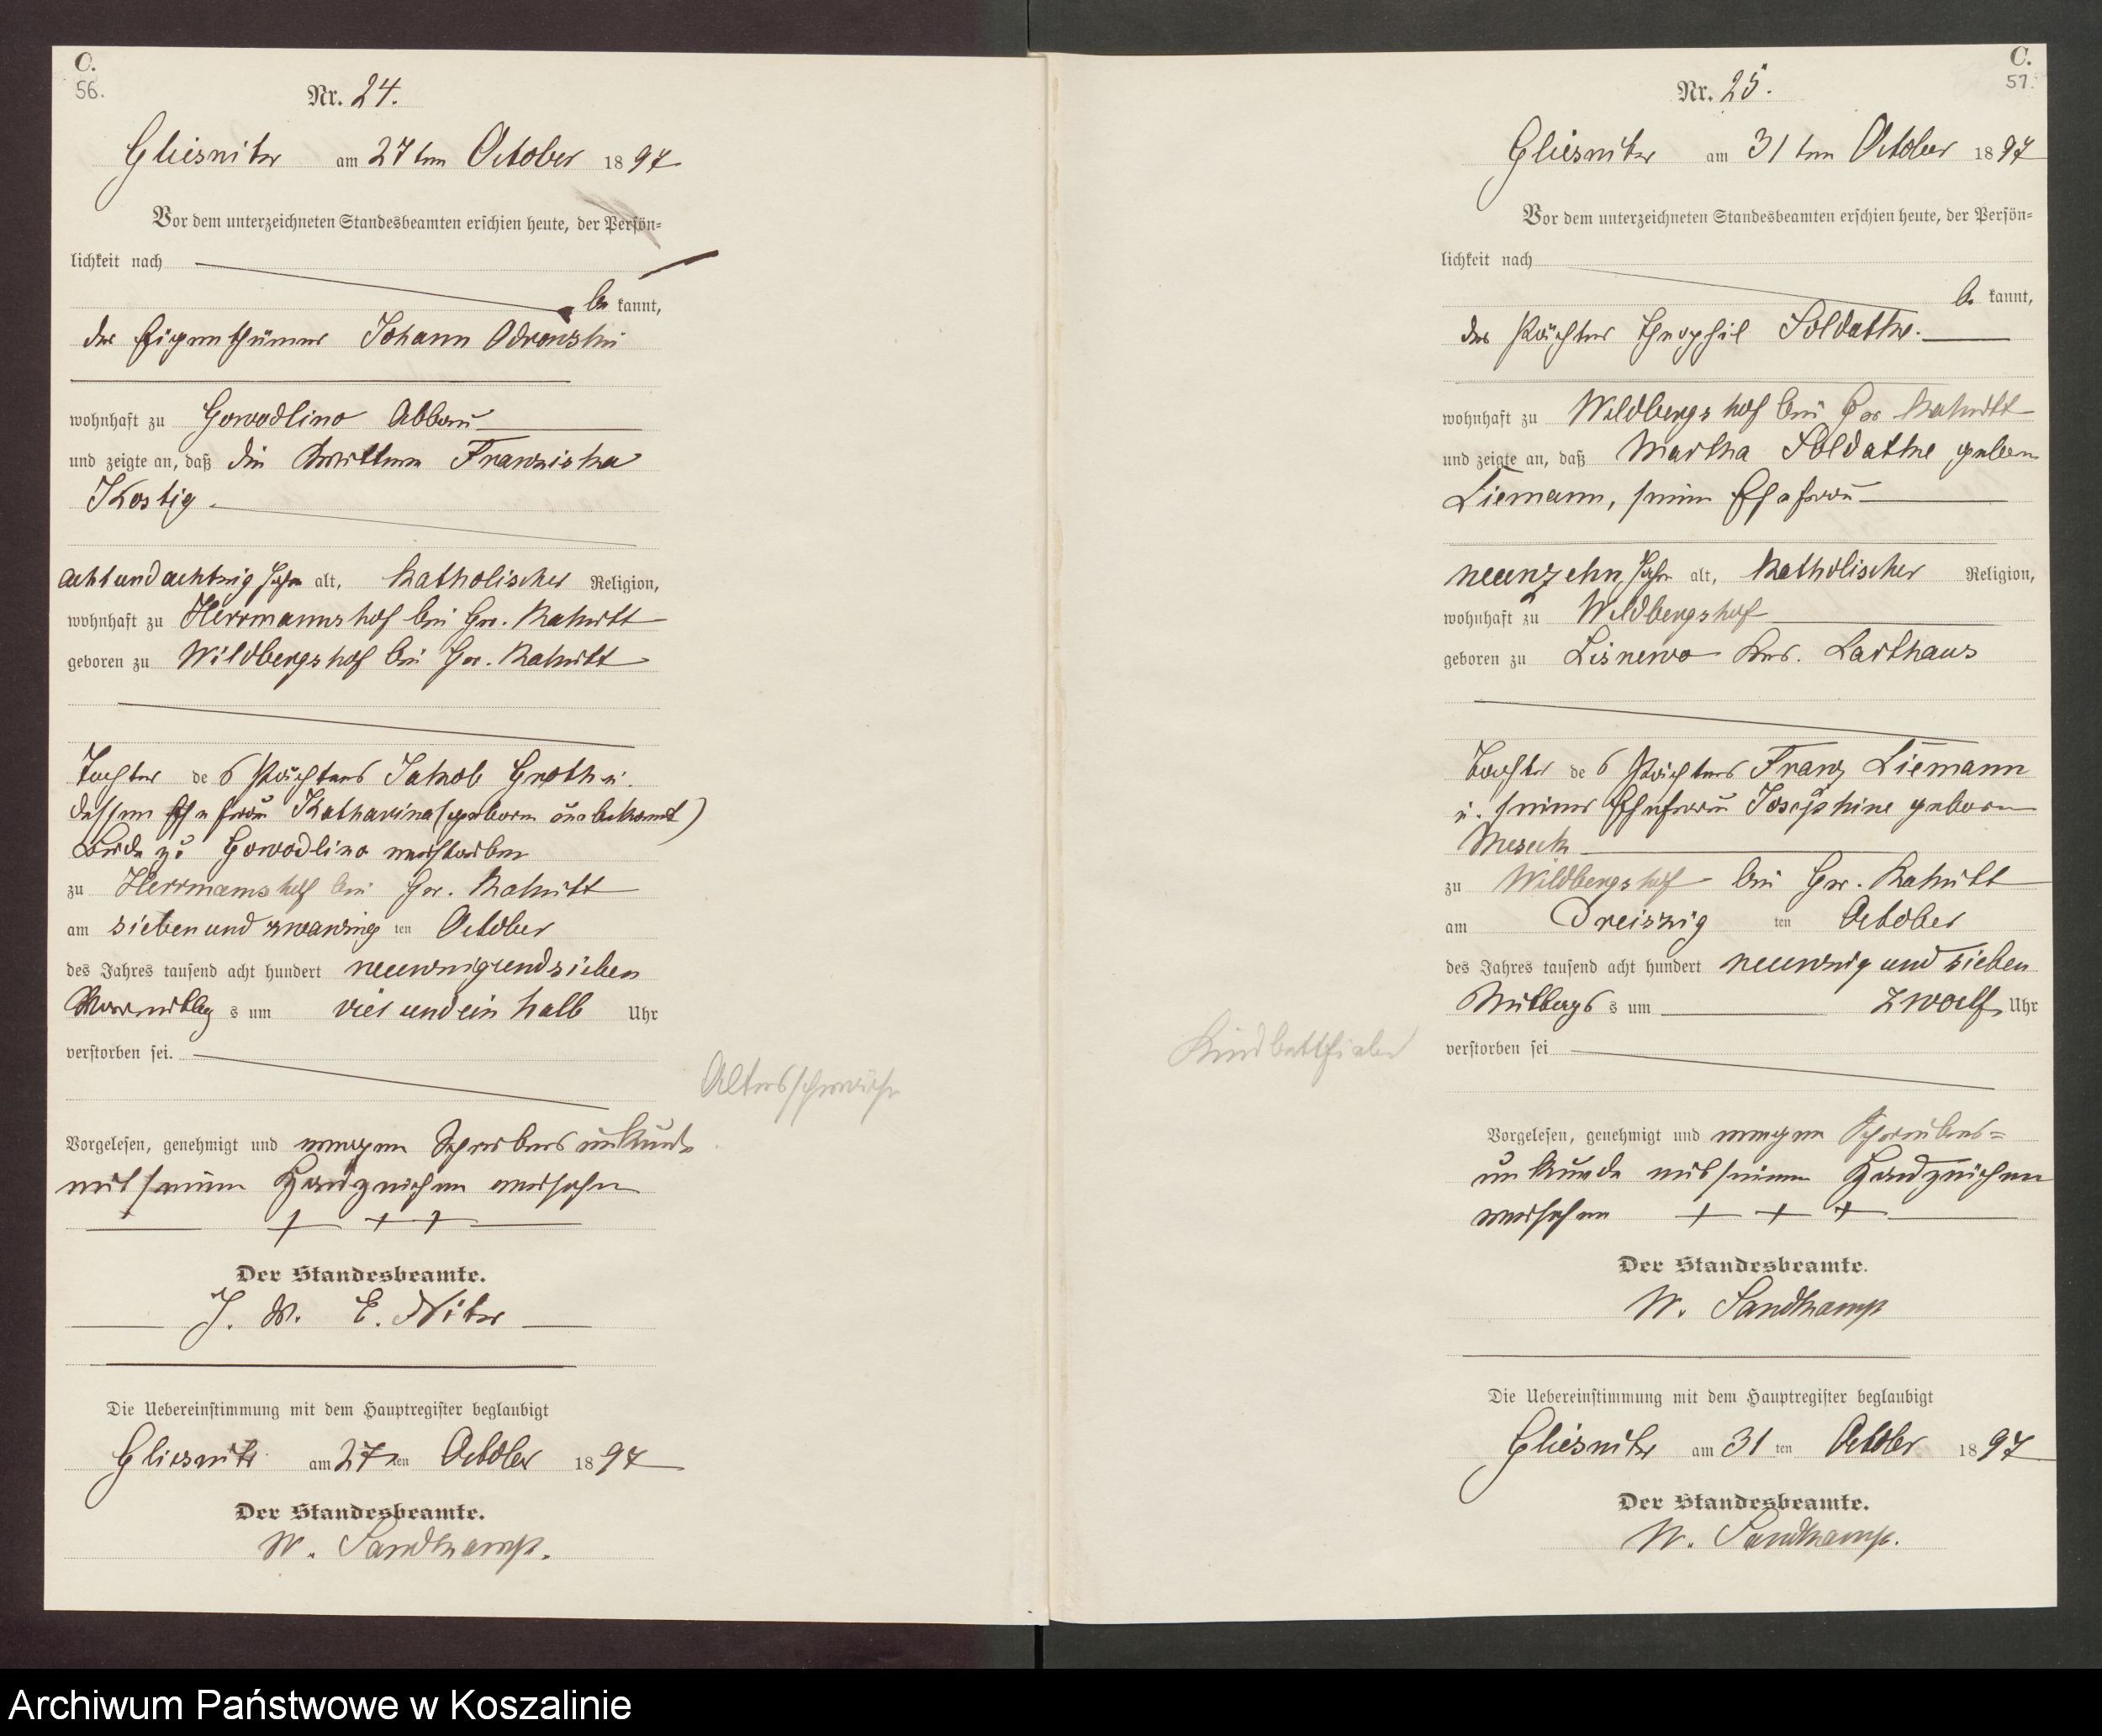 C.
56.
Nr. 24.
Gliesnitz am 27ten October 1897
Vor dem unterzeichneten Standesbeamten erschien heute, der Persön=
lichkeit nach
be kannt,
der Eigenthümer Johann Odronski
wohnhaft zu Gowodlino Abbau
und zeigte an, daß die Franziska
Kostig
achtundachtzig Jahre alt, katholischer Religion,
wohnhaft zu Herrmannshof bei Gr. Rakitt
geboren zu Wildbergshof bei Gr. Rakitt
Tochter des Pächters Jakob Groth u.
dessen Ehefrau Katharina (geboren unbekannt)
beide zu Gowodlino verstorben
zu Herrmannshof bei Gr. Rakitt
am siebenundzwanzig ten October
des Jahres tausend acht hundert neunzigundsieben
Vormittag s um vier und ein halb Uhr
verstorben sei.
Altersschwäche
Vorgelesen, genehmigt und wegen Schreibensunkunde
mit seinem Handzeichen versehen
+ + +
Der Standesbeamte.
J. V. E. Nitz
Die Uebereinstimmung mit dem Hauptregister beglaubigt
Gliesnitz am 27ten October 1897
Der Standesbeamte.
W. Sandkamp.
C.
57.
Nr. 25.
Gliesnitz am 31ten October 1897
Vor dem unterzeichneten Standesbeamten erschien heute, der Persön=
lichkeit nach
be kannt,
der Pächter Theophil Soldatke.
wohnhaft zu Wildbergshof bei Gr. Rakitt
und zeigte an, daß Martha Soldatke geboren
Liemann, seine Ehefrau
neunzehn Jahre alt, katholischer Religion,
wohnhaft zu Wildbergshof
geboren zu Lisnewo Krs. Carthaus
Tochter des Pächters Franz Liemann
u. seiner Ehefrau Josephine geboren
zu Wildbergshof bei Gr. Rakitt
am Dreiszig ten October
des Jahres tausend acht hundert neunzig und sieben
Mittags s um zwoelf Uhr
verstorben sei
Kindbettfieber
Vorgelesen, genehmigt und wegen Schreibens=
unkunde mit seinem Handzeichen
versehen + + +
Der Standesbeamte.
W. Sandkamp
Die Uebereinstimmung mit dem Hauptregister beglaubigt
Gliesnitz am 31 ten October 1897
Der Standesbeamte.
W. Sandkamp.
Archiwum Państwowe w Koszalinie